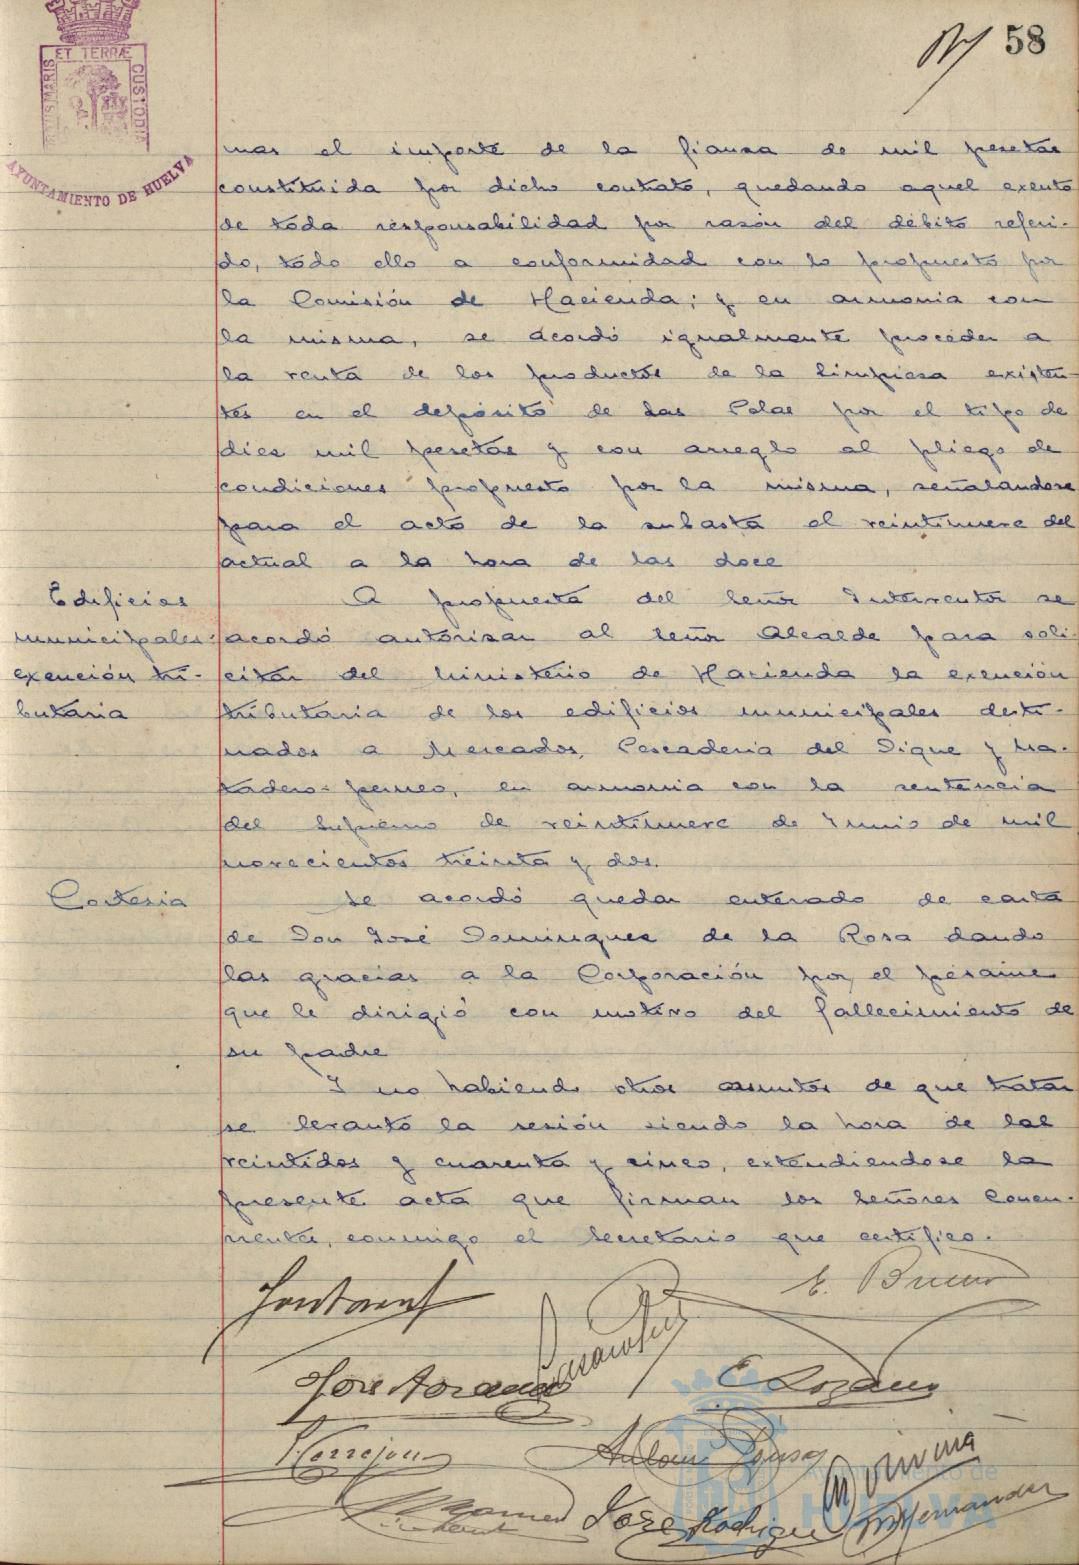 58
PORTUS MARIS ET TERRÆ CUSTODIA
AYUNTAMIENTO DE HUELVA
mas el importe de la fianza de mil pesetas
constituida por dicho contrato, quedando aquel exento
de toda responsabilidad por razón del débito referi-
do, todo ello a conformidad con lo propuesto por
la Comisión de Hacienda; y en armonia con
la misma, se acordó igualmente proceder a
la venta de los productos de la limpieza existen-
tes en el depósito de las Colas por el tipo de
diez mil pesetas y con arreglo al pliego de
condiciones propuesto por la misma, señalandose
para el acto de la subasta el veintinueve del
actual a la hora de las doce
Edificios
municipales:
exención tri-
butaria
A propuesta del Señor Interventor se
acordó autorizar al Señor Alcalde para soli-
citar del Ministerio de Hacienda la exención
tributaria de los edificios municipales desti-
nados a Mercados, Pescaderia del Dique y Ma-
tadero-perneo, en armonia con la sentencia
del Supremo de veintinueve de Junio de mil
novecientos treinta y dos.
Cortesia
Se acordó quedar enterado de carta
de Don José Dominguez de la Rosa dando
las gracias a la Corporación por el pésame
que le dirigió con motivo del fallecimiento de
su padre
Y no habiendo otros asuntos de que tratar
se levantó la sesión siendo la hora de las
veintidos y cuarenta y cinco, extendiendose la
presente acta que firman los Señores Concu-
rrentes, conmigo el Secretario que certifico.
E. Bueno
José
E. Lozano
Antonio Ponso
José Rodriguez
M Hernandez
Ayuntamiento de
HUELVA